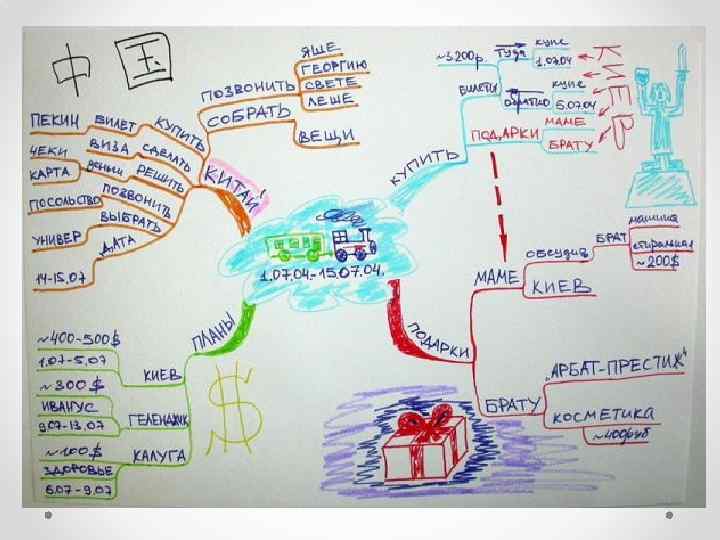 中国
ПОЗВОНИТЬ
ЯШЕ
ГЕОРГИЮ
СВЕТЕ
ЛЕШЕ
СОБРАТЬ
ВЕЩИ
КУПИТЬ
БИЛЕТ
ПЕКИН
СДЕЛАТЬ
ВИЗА
РЕШИТЬ
ДЕНЬГИ
ЧЕКИ
КАРТА
ПОЗВОНИТЬ
ПОСОЛЬСТВО
ВЫБРАТЬ
УНИВЕР
ДАТА
14-15.07
КИТАЙ
КУПИТЬ
БИЛЕТЫ
~3200р.
ТУДА
купе
1.07.04
ОБРАТНО
купе
5.07.04
ПОДАРКИ
МАМЕ
БРАТУ
КИЕВ
1.07.04.-15.07.04.
ПОДАРКИ
МАМЕ
обсудить
БРАТ
машина
стиральная
~200$
КИЕВ
БРАТУ
"АРБАТ-ПРЕСТИЖ"
КОСМЕТИКА
~400руб
ПЛАНЫ
КИЕВ
~400-500$
1.07-5.07
ГЕЛЕНДЖИК
~300$
ИВАНГУС
9.07-13.07
КАЛУГА
~100$
ЗДОРОВЬЕ
6.07-9.07
$